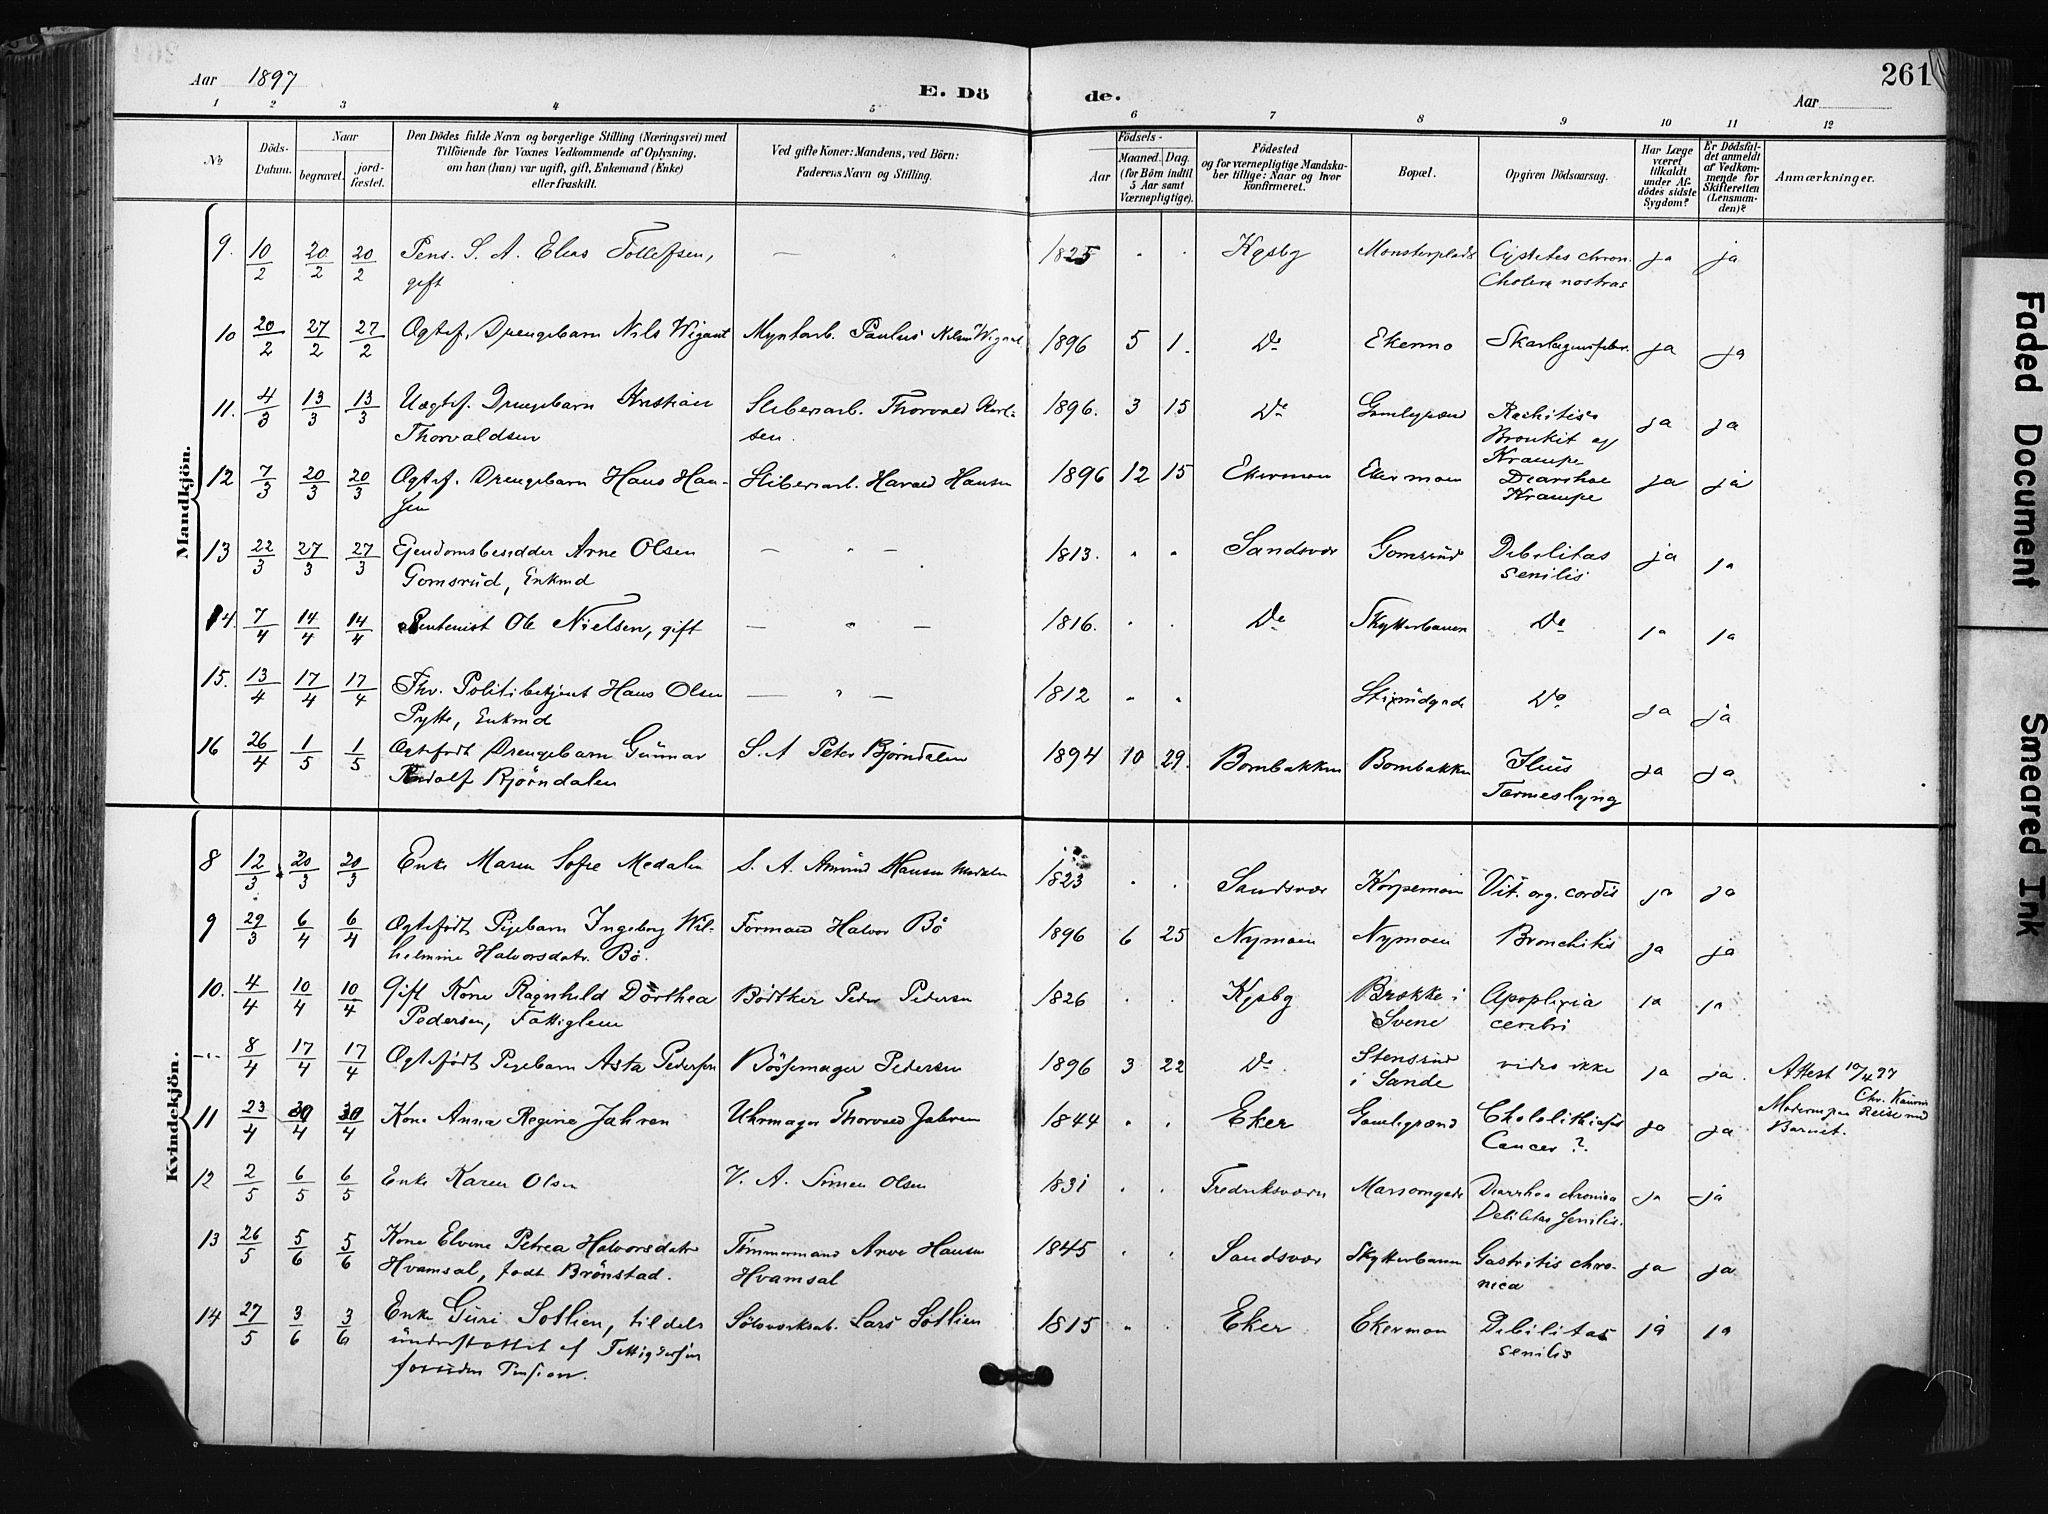 Aar 1897
E. Dö de.
261
Aar
1 2 3 4 5 6 7 8 9 10 11 12
№
Döds-Datum.
Naar
begravet.
jord-fæstet.
Den Dödes fulde Navn og borgerlige Stilling (Næringsvei) med
Tilföiende for Voxnes Vedkommende af Oplysning,
om han (hun) var ugift, gift, Enkemand (Enke)
eller fraskilt.
Ved gifte Koner: Mandens, ved Börn:
Faderens Navn og Stilling.
Födsels-
Aar
Maaned. Dag.
(for Börn indtil
5 Aar samt
Værnepligtige).
Födested
og for værnepligtige Mandska-
ber tillige: Naar og hvor
konfirmeret.
Bopæl.
Opgiven Dödsaarsag.
Har Læge
været
tilkaldt
under Af-
dödes sidste
Sygdom?
Er Dödsfal-
det anmeldt
af Vedkom-
mende for
Skifteretten
(Lensman-
den)?
Anmærkninger.
Mandkjön.
9. 10/2 20/2 20/2 Pens. S. A. Elias Tollefsen, — " 1825 " " Kgsby Monsterplads Cystetes chron. ja ja
gift Cholera nostras
10 20/2 27/2 27/2 Ogtef. Drengebarn Nils Wigant Myntarb. Paulus Nilsen Wigant 1896 5 1. Do Ekermo ja ja
11. 4/3 13/3 13/3 Uægtef. Drengebarn Kristian Sliberiarb. Thorvald Karl- 1896. 3 15 Do Rachitis ja ja
Thorvaldsen sen. Bronkit og
Krampe
12 7/3 20/3 20/3 Ogtef. Drengebarn Hans Han- Sliberiarb. Harald Hansen 1896 12 15 Ekermoen Ekermoen Diarrhoe ja ja
sen Krampe
13 22/3 27/3 27/3 Ejendomsbesidder Arne Olsen — " — 1813. " " Sandsvær Gomsrud Debilitas ja ja
Gomsrud, Enkmd senilis
14. 7/4 14/4 14/4 Rentenist Ole Nielsen, gift — " — 1816. " " Do Skytterbanen Do ja ja
15. 13/4 17/4 17/4 Fhv. Politibetjent Hans Olsen — " — 1812 " " Do ja ja
Pytte, Enkmd
16 26/4 1/5 1/5 Ogtefødt Drengebarn Gunnar S. A Peter Bjørndalen 1894 10 29. Bombakken Bombakken Ileus ja ja
Rudolf Bjørndalen Tarmeslyng
Kvindekjön.
8 12/3 20/3 20/3 Enke Maren Sofie Medalen S. A. Amund Hansen Medalen 1823 " " Sandsvær Korpemoen Vit. org. cordis ja ja
9 29/3 6/4 6/4 Ogtefødt Pigebarn Ingeborg Wil- Formand Halvor Bö 1896 6 25 Nymoen Nymoen Bronchitis ja ja
helmine Halvorsdatr. Bö.
10. 4/4 10/4 10/4 Gift Kone Ragnhild Dorthea Bödtker Peder Pedersen 1826 " " Kgsby Brekke i Apoplexia ja ja
Pedersen, Fattiglem Svene cerebri
-"- 8/4 17/4 17/4 Ogtefødt Pigebarn Asta Pedersen Bössemager Pedersen 1896 3 22 Do Stensrud vides ikke ja ja. Attest 10/4 97
i Sande Chr. Kaurin
11 23/4 30/4 30/4 Kone Anna Regine Jahren Uhrmager Thorvald Jahren 1844 " " Eker Gamlegrænd Chololithiasis ja ja Moderen paa Reise med
Cancer? Barnet.
12 2/5 6/5 6/5 Enke Karen Olsen V. A. Simen Olsen 1831 " " Fredriksværn Diarrhoa chronica ja ja
Debilitas senilis.
13 26/5 5/6 5/6 Kone Elvine Petrea Halvorsdatr Tømmermand Arve Hansen 1845 " " Sandsvær Skytterbanen Gastritis chro- ja ja
Hvamsal, født Brönstad. Hvamsal nica
14 27/5 3/6 3/6 Enke Guri Sotlien, tildels Sölvverksarb. Lars Sotlien 1815 " " Eker Ekermoen Debilitas ja ja
understøttet af senilis
foruden Pension.
Faded Document
Smeared Ink